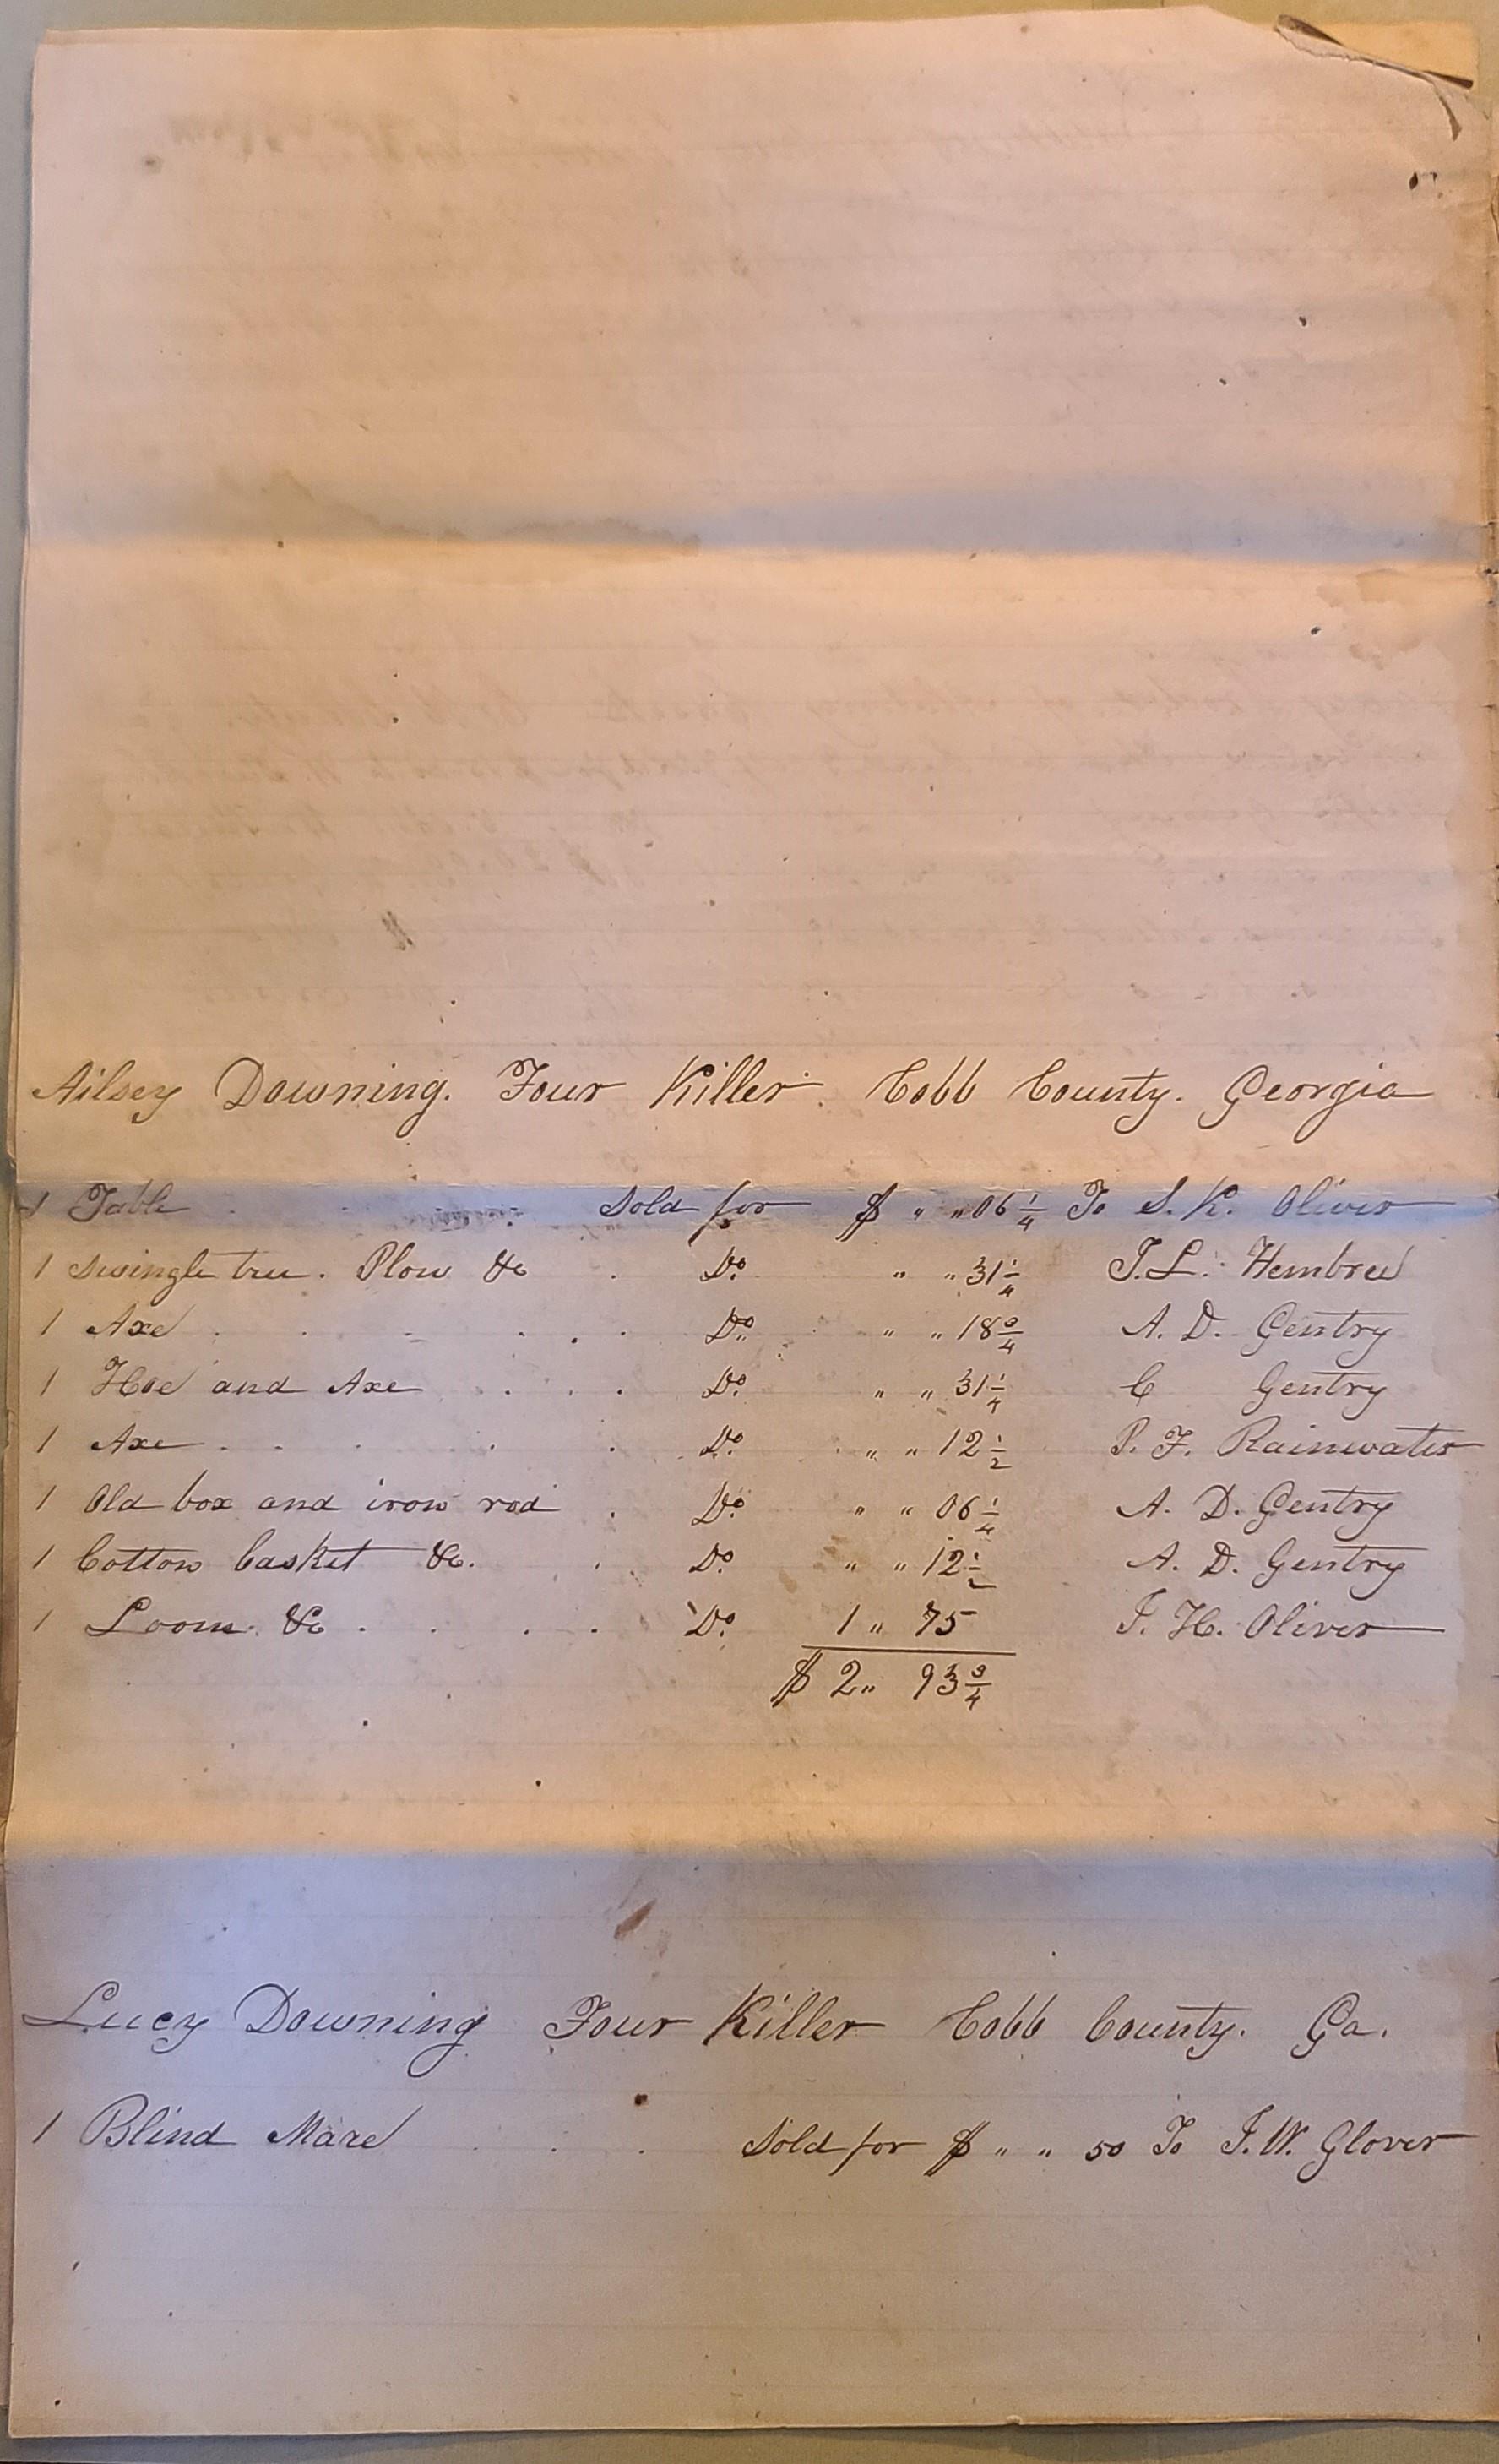 Ailsey Downing. Four Killer. Cobb County. Georgia
1 Table . . . Sold for $ " " 06 1/4 To S. K. Oliver
1 Swingle tree. Plow &c . Do. " " 31 1/4 T. L. Hembree
1 Axe . . . . . . . Do. " " 18 3/4 A. D. Gentry
1 Hoe and Axe . . . Do. " " 31 1/4 C Gentry
1 Axe . . . . . . Do. " " 12 1/2 P. F. Rainwater
1 Old box and iron rod . Do. " " 06 1/4 A. D. Gentry
1 Cotton basket &c. . Do. " " 12 1/2 A. D. Gentry
1 Loom. &c . . . . Do. 1 " 75 J. H. Oliver
$ 2 " 93 3/4
Lucy Downing Four Killer Cobb County. Ga.
1 Blind Mare . . . Sold for $ " " 50 To J. W. Glover